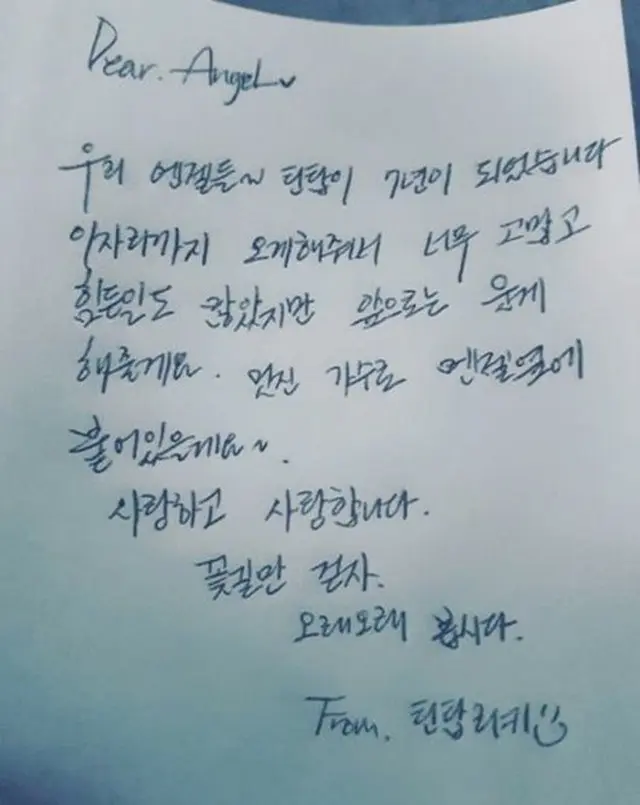 Dear. Angel
우리 엔젤들~ 틴탑이 7년이 되었습니다
이자리까지 오게해줘서 너무 고맙고
힘든일도 많았지만 앞으로는 웃게
해줄게요. 멋진 가수로 엔젤옆에
붙어있을게요~.
사랑하고 사랑합니다.
꽃길만 걷자.
오래오래 봅시다.
From. 틴탑 리키